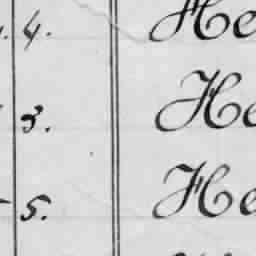 4. He
3. He
5. He